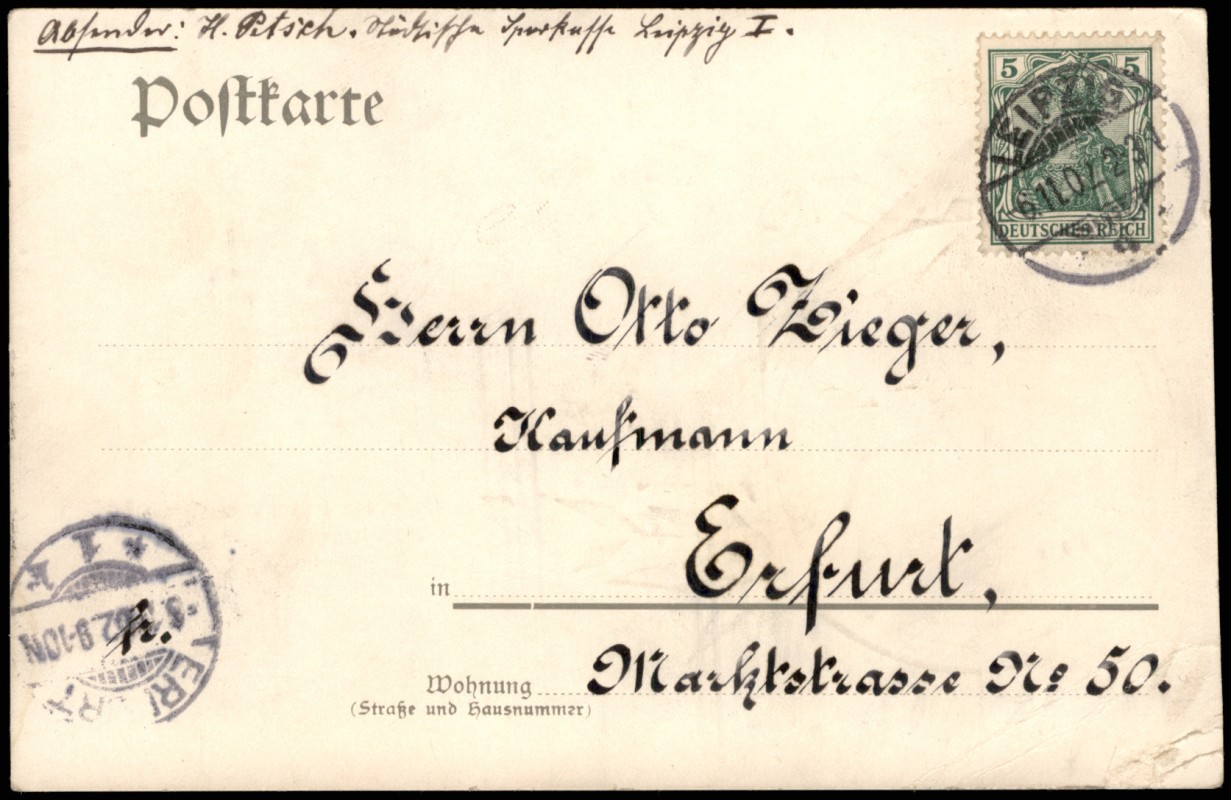 Absender: H. Petsch. Städtische Sparkasse Leipzig I.
Postkarte
5 5
LEIPZIG
6.11.02 2-3 V
DEUTSCHES REICH
Herrn Otto Zieger,
Kaufmann
in Erfurt,
Wohnung Marktstrasse No 50.
(Straße und Hausnummer)
fr.
ERFURT
9-10N
* 1 k